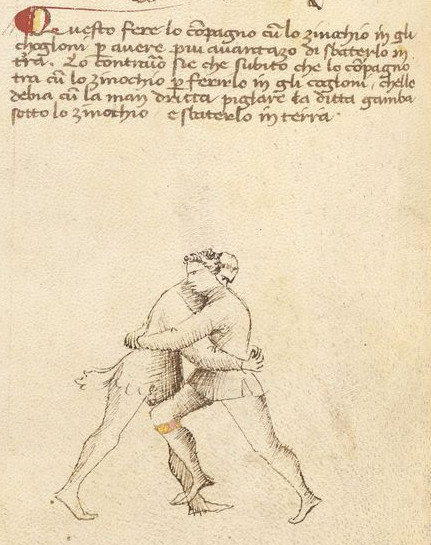 Questo fere lo cōpagno cū lo zinochio in gli
chogloni per avere piu avantazo di sbaterlo in
terra. Lo contrario sie che subito che lo cōpagno
tra cū lo zinochio per ferirlo in gli coglioni, chello
debia cū la man dritta pigliare la ditta gamba
sotto lo zinochio e sbaterlo in terra.